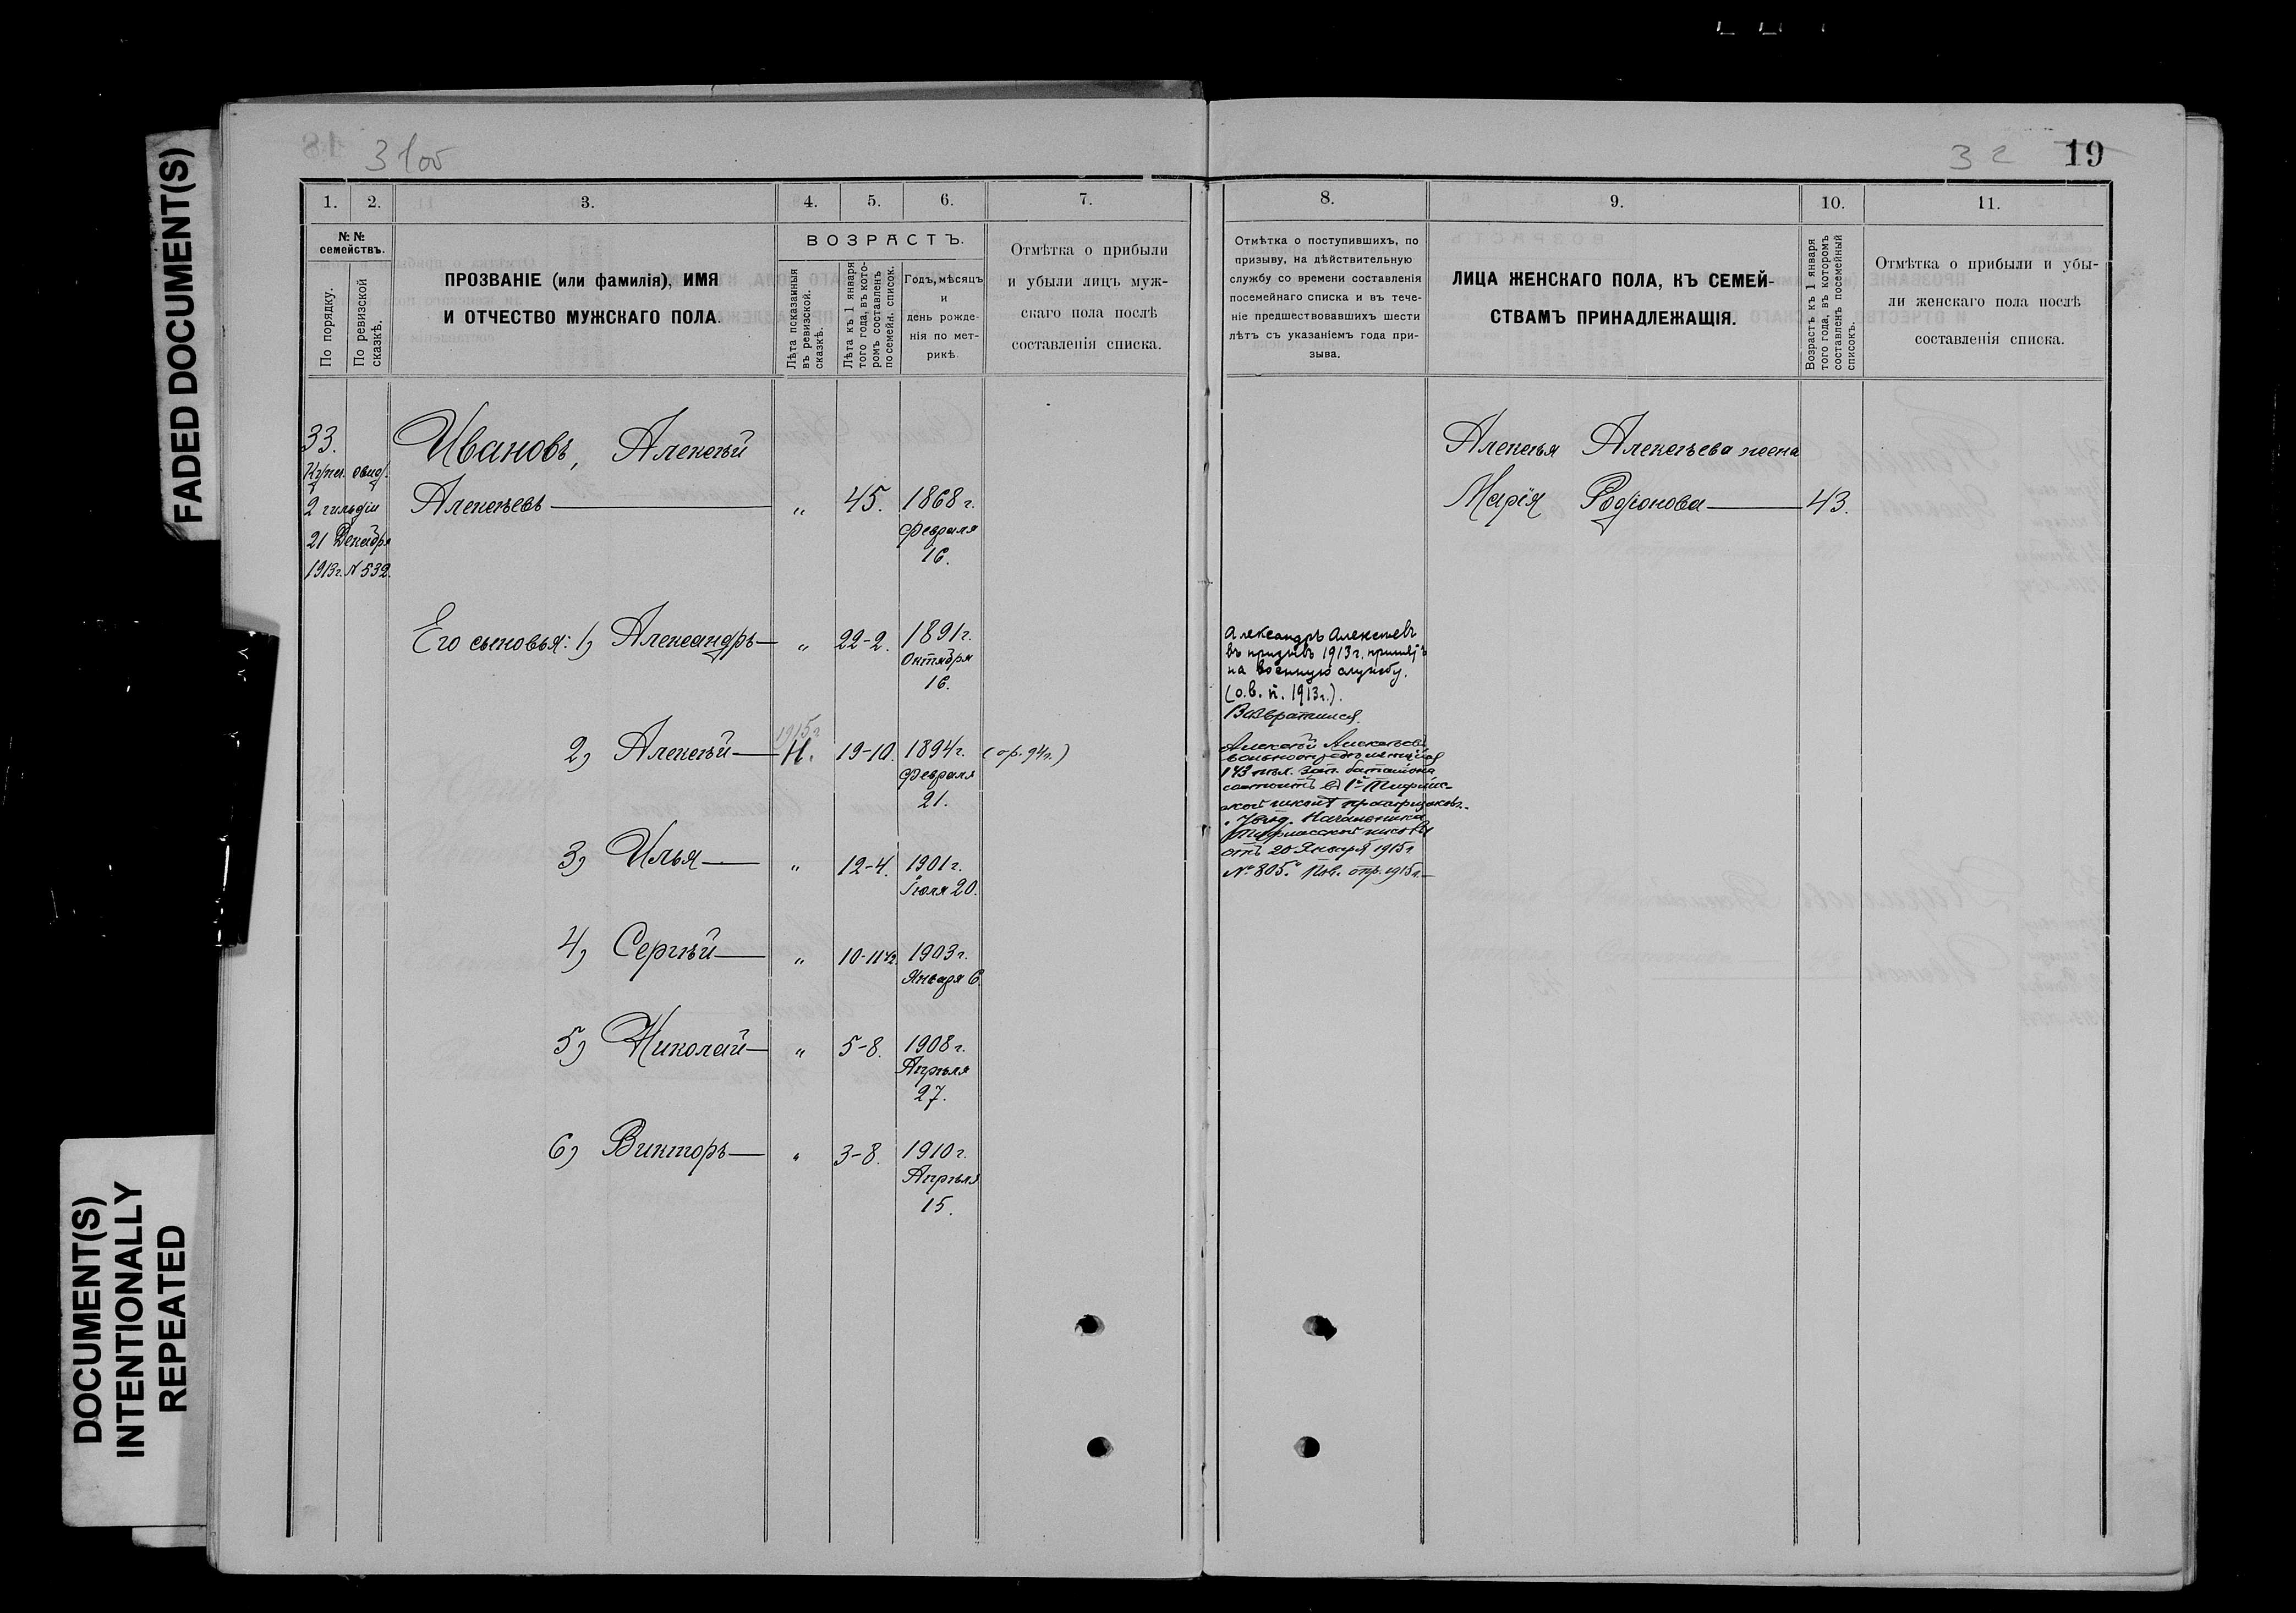 FADED DOCUMENT(S)
DOCUMENT(S)
INTENTIONALLY
REPEATED
3 1об
32 19
1. 2. 3. 4. 5. 6. 7.
№ №
семействъ.
По порядку.
По ревизской
сказкѣ.
ПРОЗВАНІЕ (или фамилія), ИМЯ
И ОТЧЕСТВО МУЖСКАГО ПОЛА.
ВОЗРАСТЪ.
Лѣта показанныя
въ ревизской.
сказкѣ.
Лѣта къ 1 января
того года, въ кото-
ромъ составленъ
посемейн. список.
Годъ, мѣсяцъ
и
день рожде-
нія по мет-
рикѣ.
Отмѣтка о прибыли
и убыли лицъ муж-
скаго пола послѣ
составленія списка.
33.
Купеч. свид.
2 гильдіи
21 Декабря
1913г. № 532.
Ивановъ, Алексѣй
Алексѣевъ — „ 45. 1868 г.
Февраля
16.
Его сыновья: 1) Александръ — „ 22-2. 1891 г.
Октября
16.
1915 г
2) Алексѣй — И. 19-10. 1894 г. (ор. 94 г.)
Февраля
21.
3) Илья — „ 12-4. 1901 г.
Іюля 20.
4) Сергѣй — „ 10-11½ 1903 г.
Января 6.
5) Николай — „ 5-8. 1908 г.
Апрѣля
27.
6) Викторъ — „ 3-8. 1910 г.
Апрѣля
15.
8. 9. 10. 11.
Отмѣтка о поступившихъ, по
призыву, на дѣйствительную
службу со времени составленія
посемейнаго списка и въ тече-
ніе предшествовавшихъ шести
лѣтъ съ указаніемъ года при-
зыва.
ЛИЦА ЖЕНСКАГО ПОЛА, КЪ СЕМЕЙ-
СТВАМЪ ПРИНАДЛЕЖАЩІЯ.
Возрастъ къ 1 января
того года, въ которомъ
составленъ посемейный
списокъ.
Отмѣтка о прибыли и убы-
ли женскаго пола послѣ
составленія списка.
Алексѣя Алексѣева жена
Марія Родіонова — 43.
Александръ Алексѣевъ
въ призывъ 1913 г. принятъ
на военную службу.
(о.в.п. 1913 г.).
Возвратился.
Алексѣй Алексѣевъ
вольноопредѣляющійся
143 пѣх. зап. баталіона
состоитъ въ 1й Тифлис-
ской школѣ прапорщиковъ.
Удод. Начальника
Тифлисской школы
отъ 20 Января 1915 г
№ 805. Пов. отр. 1915 г.